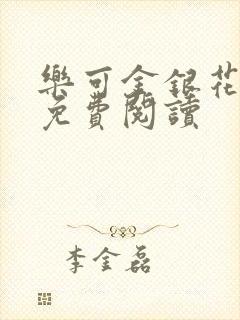 樂可金銀花
免費閱讀
李金磊